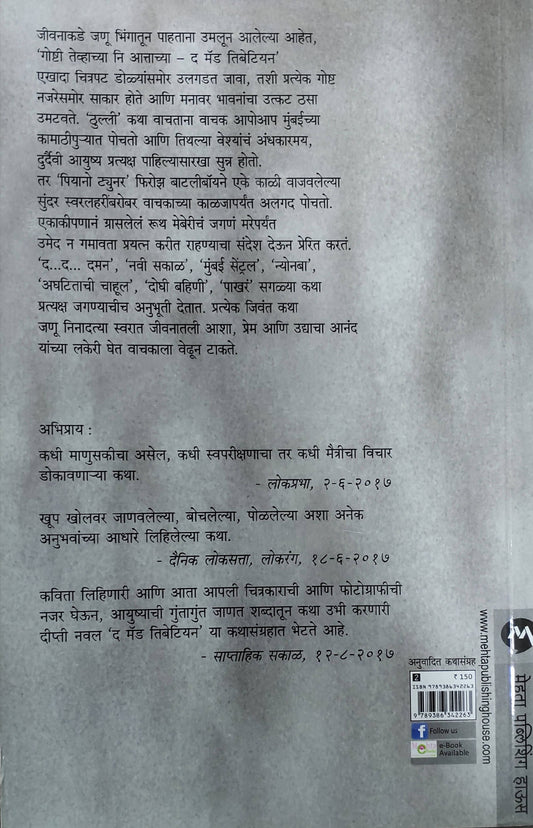 जीवनाकडे जणू भिंगातून पाहताना उमलून आलेल्या आहेत,
'गोष्टी तेव्हाच्या नि आत्ताच्या - द मॅड तिबेटियन'
एखादा चित्रपट डोळ्यांसमोर उलगडत जावा, तशी प्रत्येक गोष्ट
नजरेसमोर साकार होते आणि मनावर भावनांचा उत्कट ठसा
उमटवते. 'ठुल्ली' कथा वाचताना वाचक आपोआप मुंबईच्या
कामाठीपुऱ्यात पोचतो आणि तिथल्या वेश्यांचं अंधकारमय,
दुर्दैवी आयुष्य प्रत्यक्ष पाहिल्यासारखा सुन्न होतो.
तर 'पियानो ट्युनर' फिरोझ बाटलीबॉयने एके काळी वाजवलेल्या
सुंदर स्वरलहरींबरोबर वाचकाच्या काळजापर्यंत अलगद पोचतो.
एकाकीपणानं ग्रासलेलं रूथ मेबेरीचं जगणं मरेपर्यंत
उमेद न गमावता प्रयत्न करीत राहण्याचा संदेश देऊन प्रेरित करतं.
'द...द... दमन', 'नवी सकाळ', 'मुंबई सेंट्रल', 'न्योनबा',
'अघटिताची चाहूल', 'दोघी बहिणी', 'पाखरं' सगळ्या कथा
प्रत्यक्ष जगण्याचीच अनुभूती देतात. प्रत्येक जिवंत कथा
जणू निनादत्या स्वरात जीवनातली आशा, प्रेम आणि उद्याचा आनंद
यांच्या लकेरी घेत वाचकाला वेढून टाकते.
अभिप्राय :
कधी माणुसकीचा असेल, कधी स्वपरीक्षणाचा तर कधी मैत्रीचा विचार
डोकावणाऱ्या कथा.
- लोकप्रभा, २-६-२०१७
खूप खोलवर जाणवलेल्या, बोचलेल्या, पोळलेल्या अशा अनेक
अनुभवांच्या आधारे लिहिलेल्या कथा.
- दैनिक लोकसत्ता, लोकरंग, १८-६-२०१७
कविता लिहिणारी आणि आता आपली चित्रकाराची आणि फोटोग्राफीची
नजर घेऊन, आयुष्याची गुंतागुंत जाणत शब्दातून कथा उभी करणारी
दीप्ती नवल 'द मॅड तिबेटियन' या कथासंग्रहात भेटते आहे.
- साप्ताहिक सकाळ, १२-८-२०१७
अनुवादित कथासंग्रह
2 ₹ 150
ISBN 9789386342263
9 789386 342263
Follow us
e-Book
Available
www.mehtapublishinghouse.com
मेहता पब्लिशिंग हाऊस